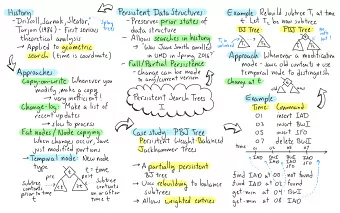 History:
- Driscoll, Sarnak, Sleator,
Tarjan (1986) - First serious
theoretical analysis
→ Applied to geometric
search (time is coordinate)
Approaches:
Copy-on-write Whenever you
modify, make a copy
→ very inefficient!
Change-log Make a list of
recent updates
→ slow to process
Fat nodes/Node copying
When changes occur, save
just modified portions
→ Temporal node New node
type
t
pre
t = time
Subtree
contents
prior to
time t
Subtree
contents
on or after
time t
Persistent Data Structures
- Preserves prior states of
data structure
- Allows searches in history
→ Was Jane Smith enrolled
in UMD in Spring 2015?
Full/Partial Persistence
- Change can be made
to any/current version
Persistent Search Trees
Case study: PBJ Tree
Persistent Weight-Balanced
Jackhammer Trees
- A partially persistent
tree
- Use rebuilding to balance
subtrees
- Allow weighted entries
Example: Rebuild subtree T₁ at time
t. Let T₂ be new subtree
BJ Tree
PBJ Tree
Approach: Whenever a modification
made - Save old contents + use
temporal node to distinguish
change at t
Example:
Time Command
01 insert IAD
03 insert BWI
05 insert SFO
07 delete BWI
time 01 03 05 07
find IAD at 00 not found
find IAD at 01 found
get-min at 04 BWI
get-min at 08 IAD